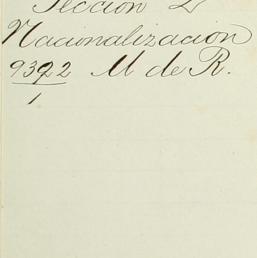 Sección 2ª
Nacionalización
9392 M de R.
1